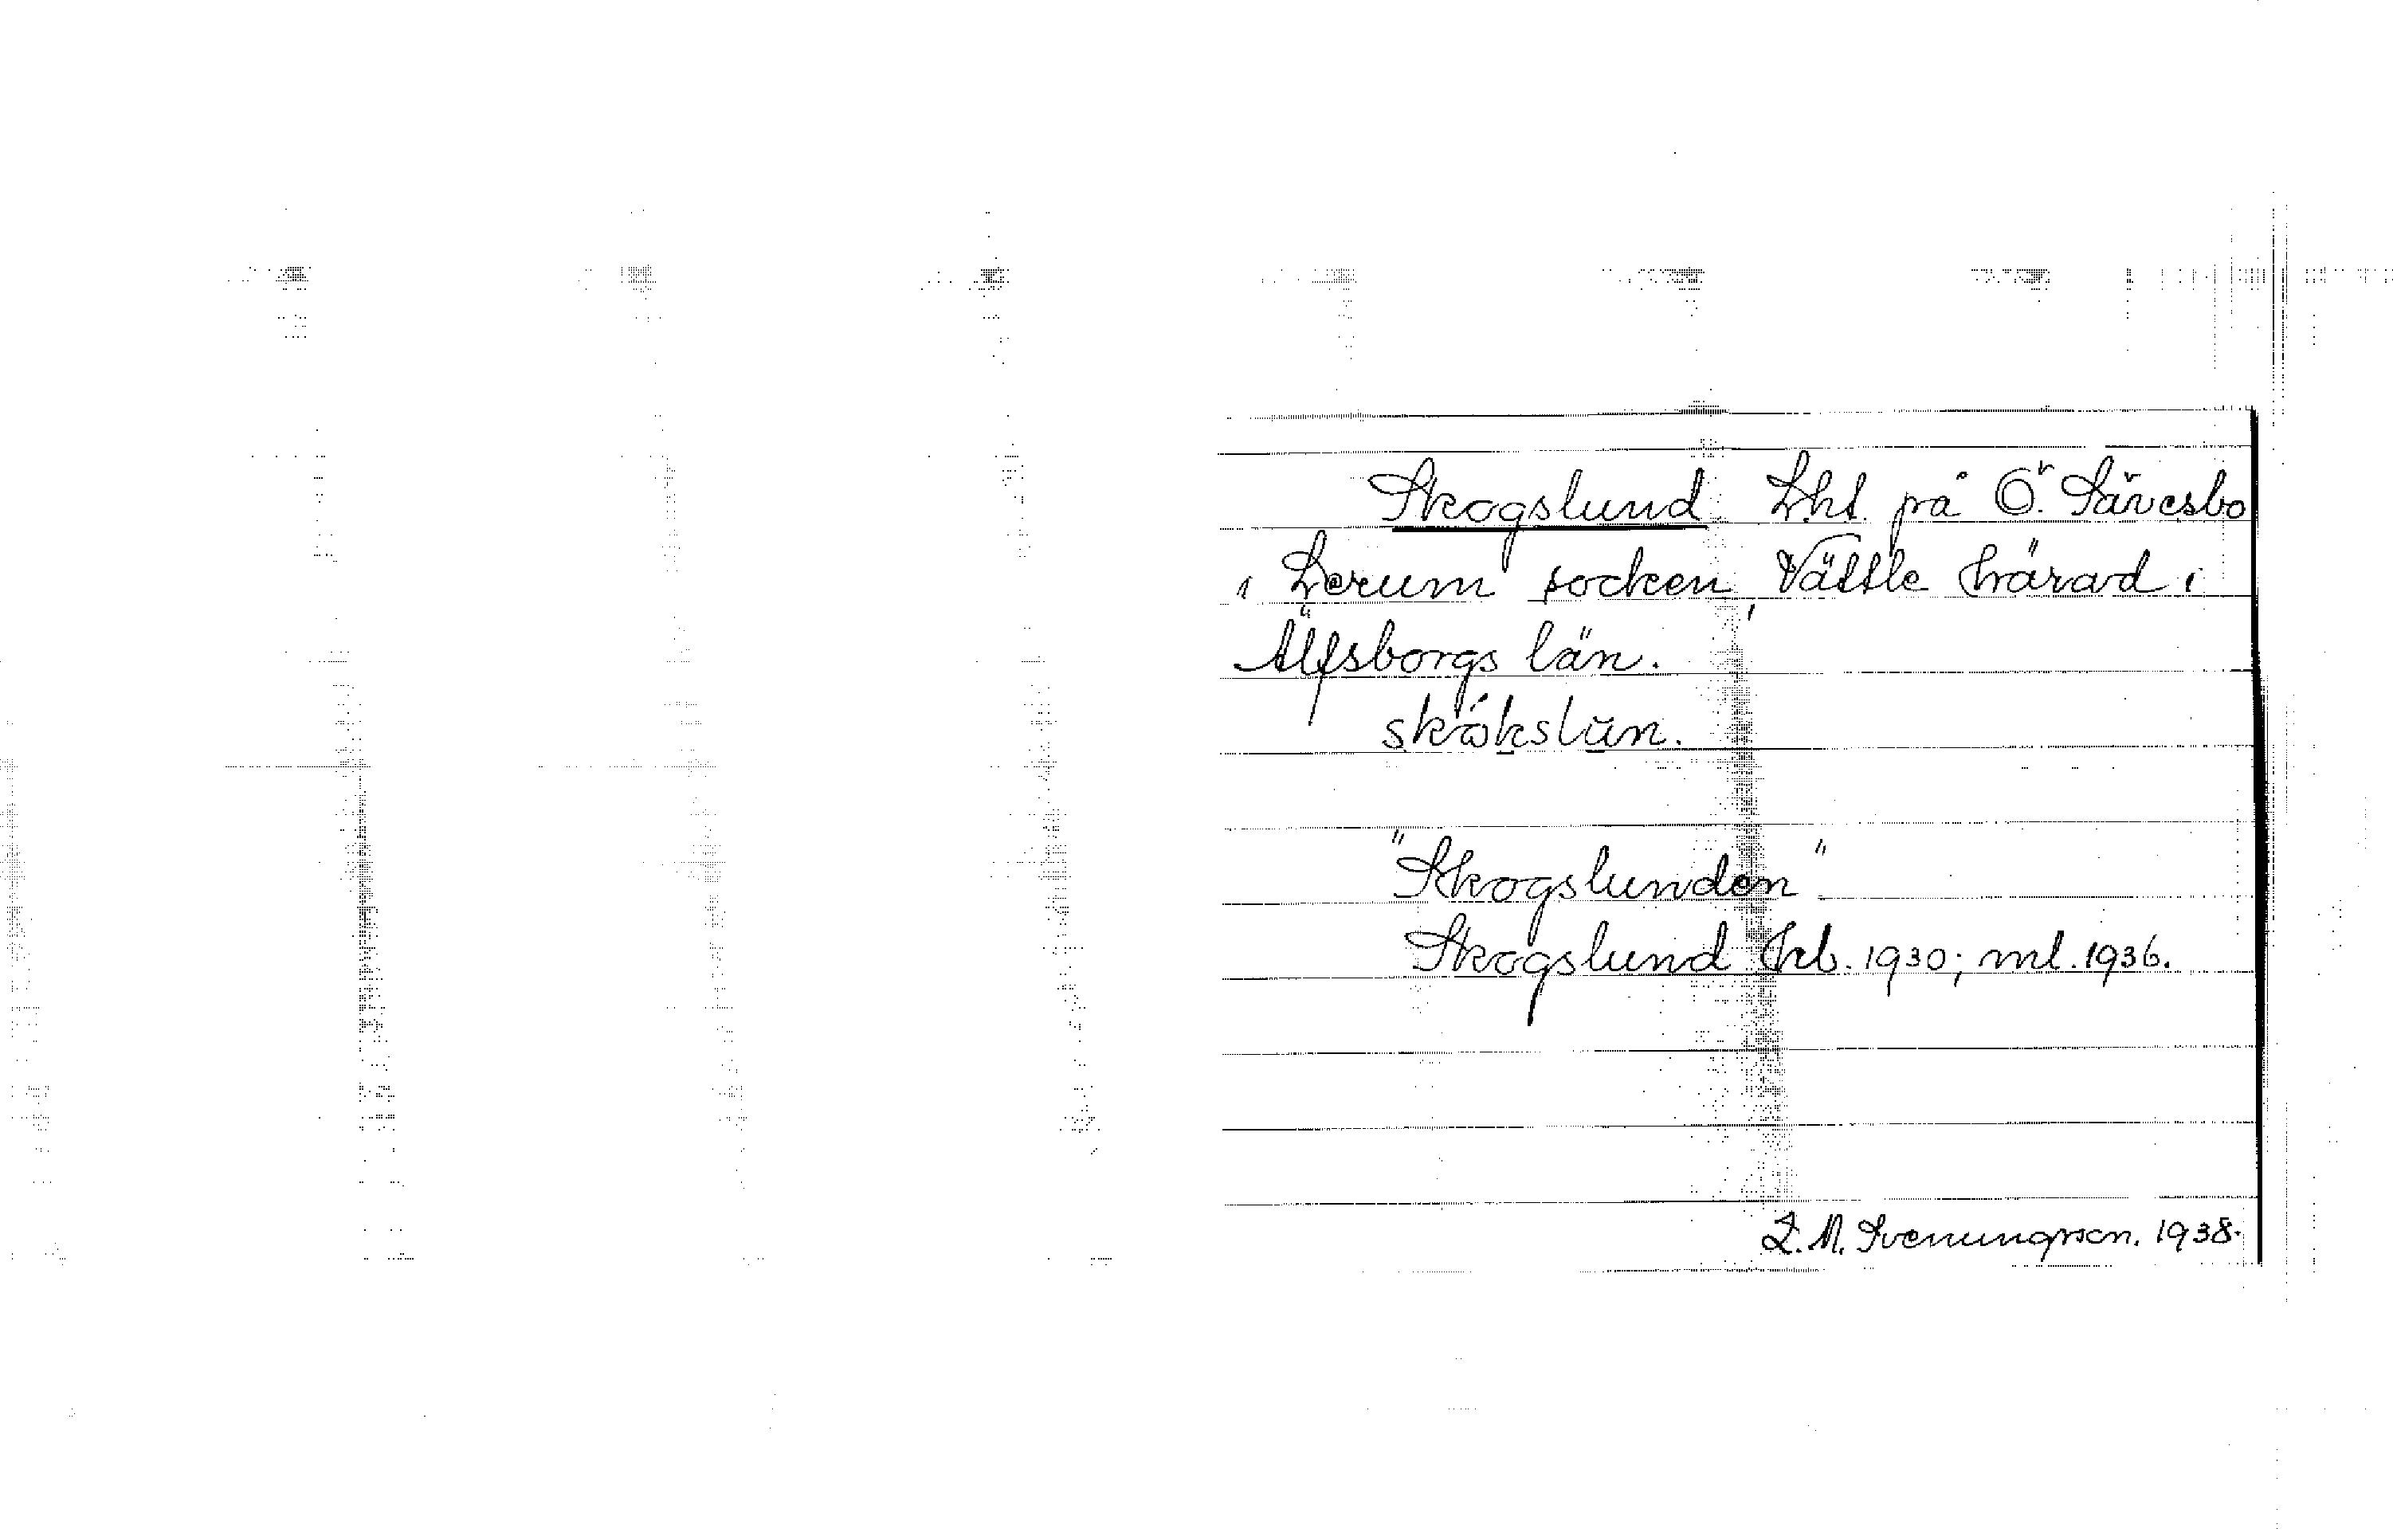 Skogslund. Lht. på Ö. Sävesbo
i Lerum socken, Vättle härad i
Älfsborgs län.
skåkslun.
"Skogslunden"
Skogslund Jrb. 1930; ml. 1936.
L. M. Svenungsson. 1938.